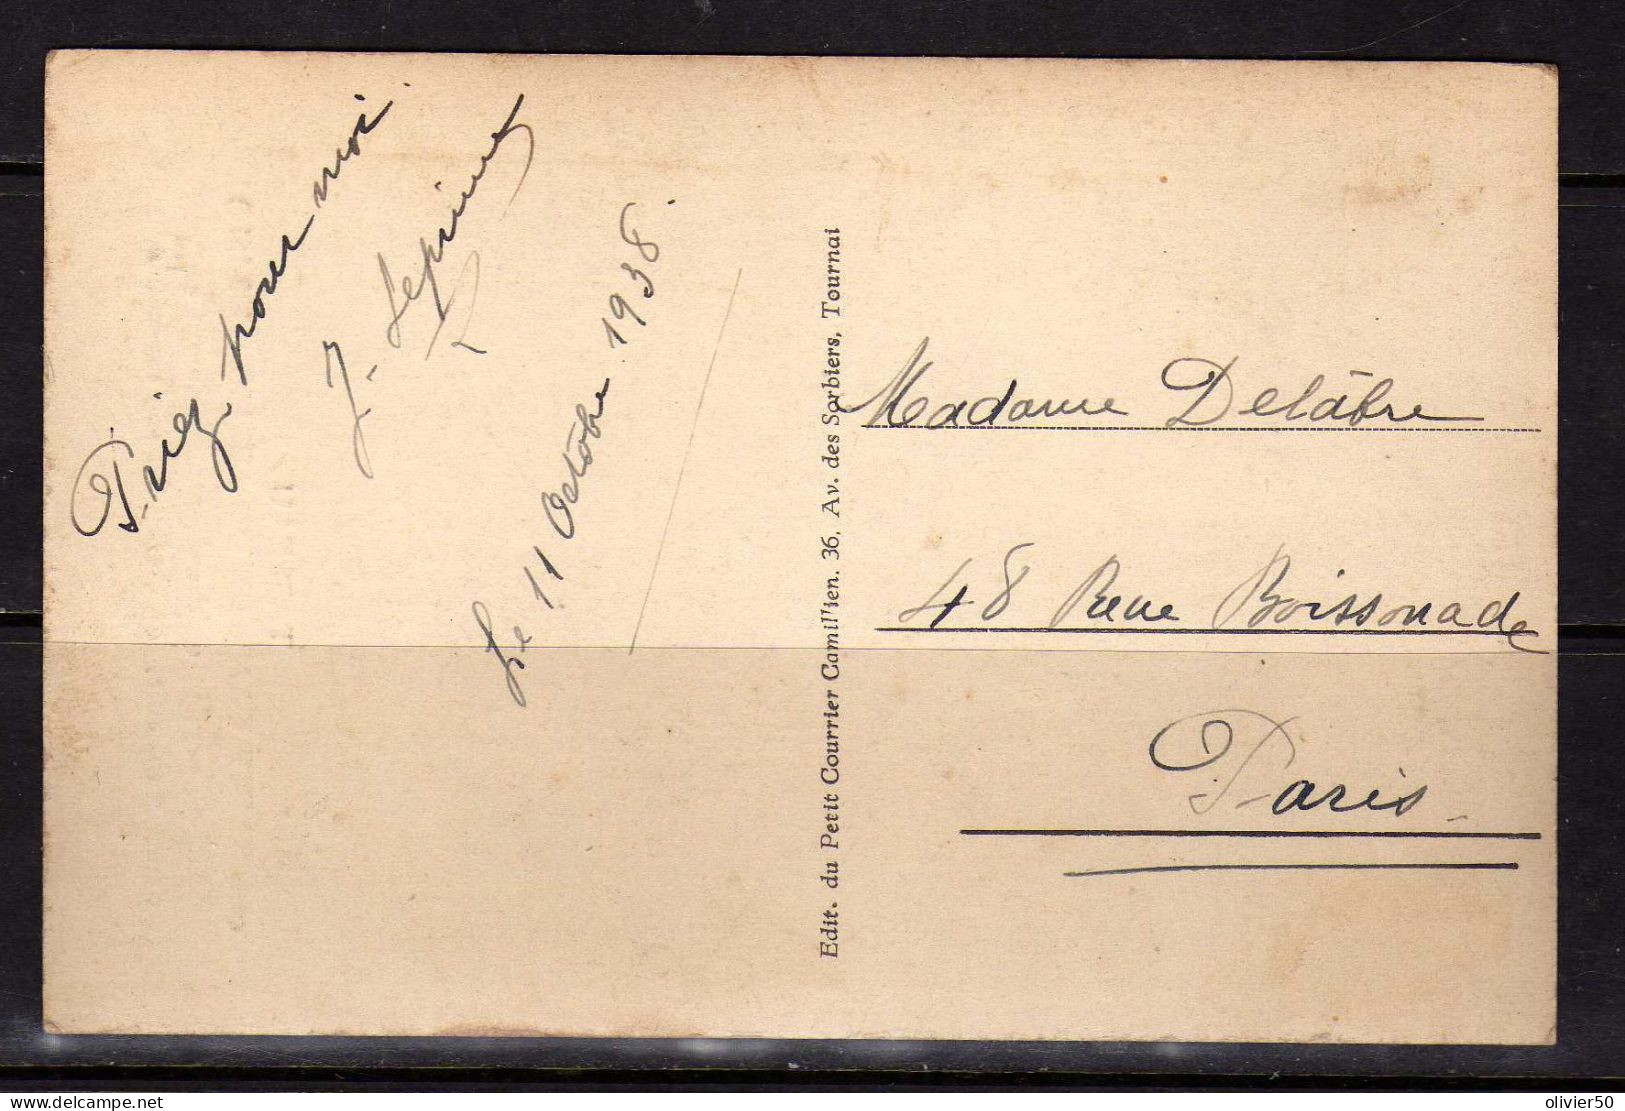 Priez pour moi.
J. Leprince
Le 11 Octobre 1938.
Edit. du Petit Courrier Camillien. 36, Av. des Sorbiers, Tournai
Madame Delâbre
48 Rue Boissonade
Paris
delcampe.net
olivier50